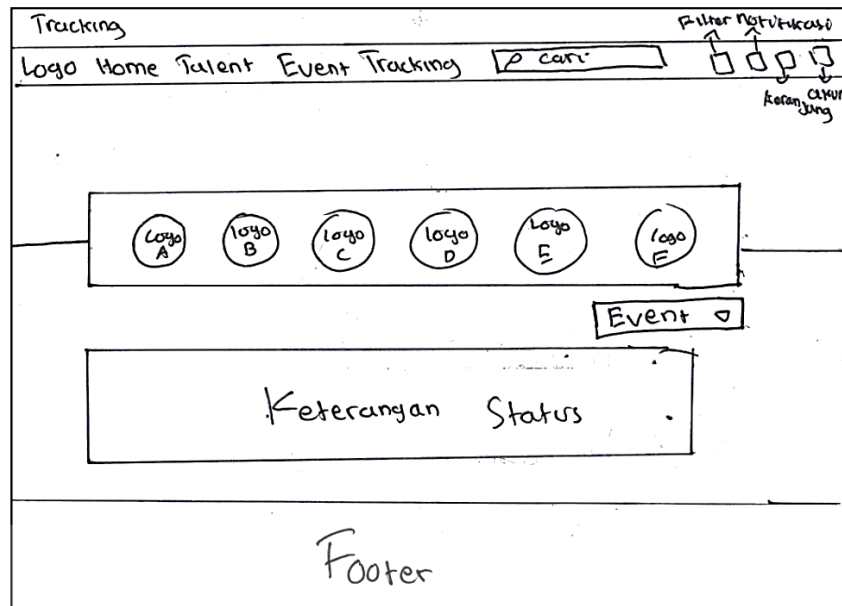 Tracking
Filter Notifikasi
Logo Home Talent Event Tracking cari
keran jang akun
Logo A
logo B
logo C
logo D
Logo E
logo F
Event
Keterangan Status
Footer